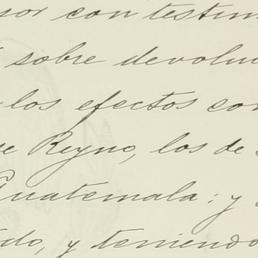 sor con testim
sobre devoluc
los efectos con
e Reyno, los de
Guatemala: y
do, y teniendo